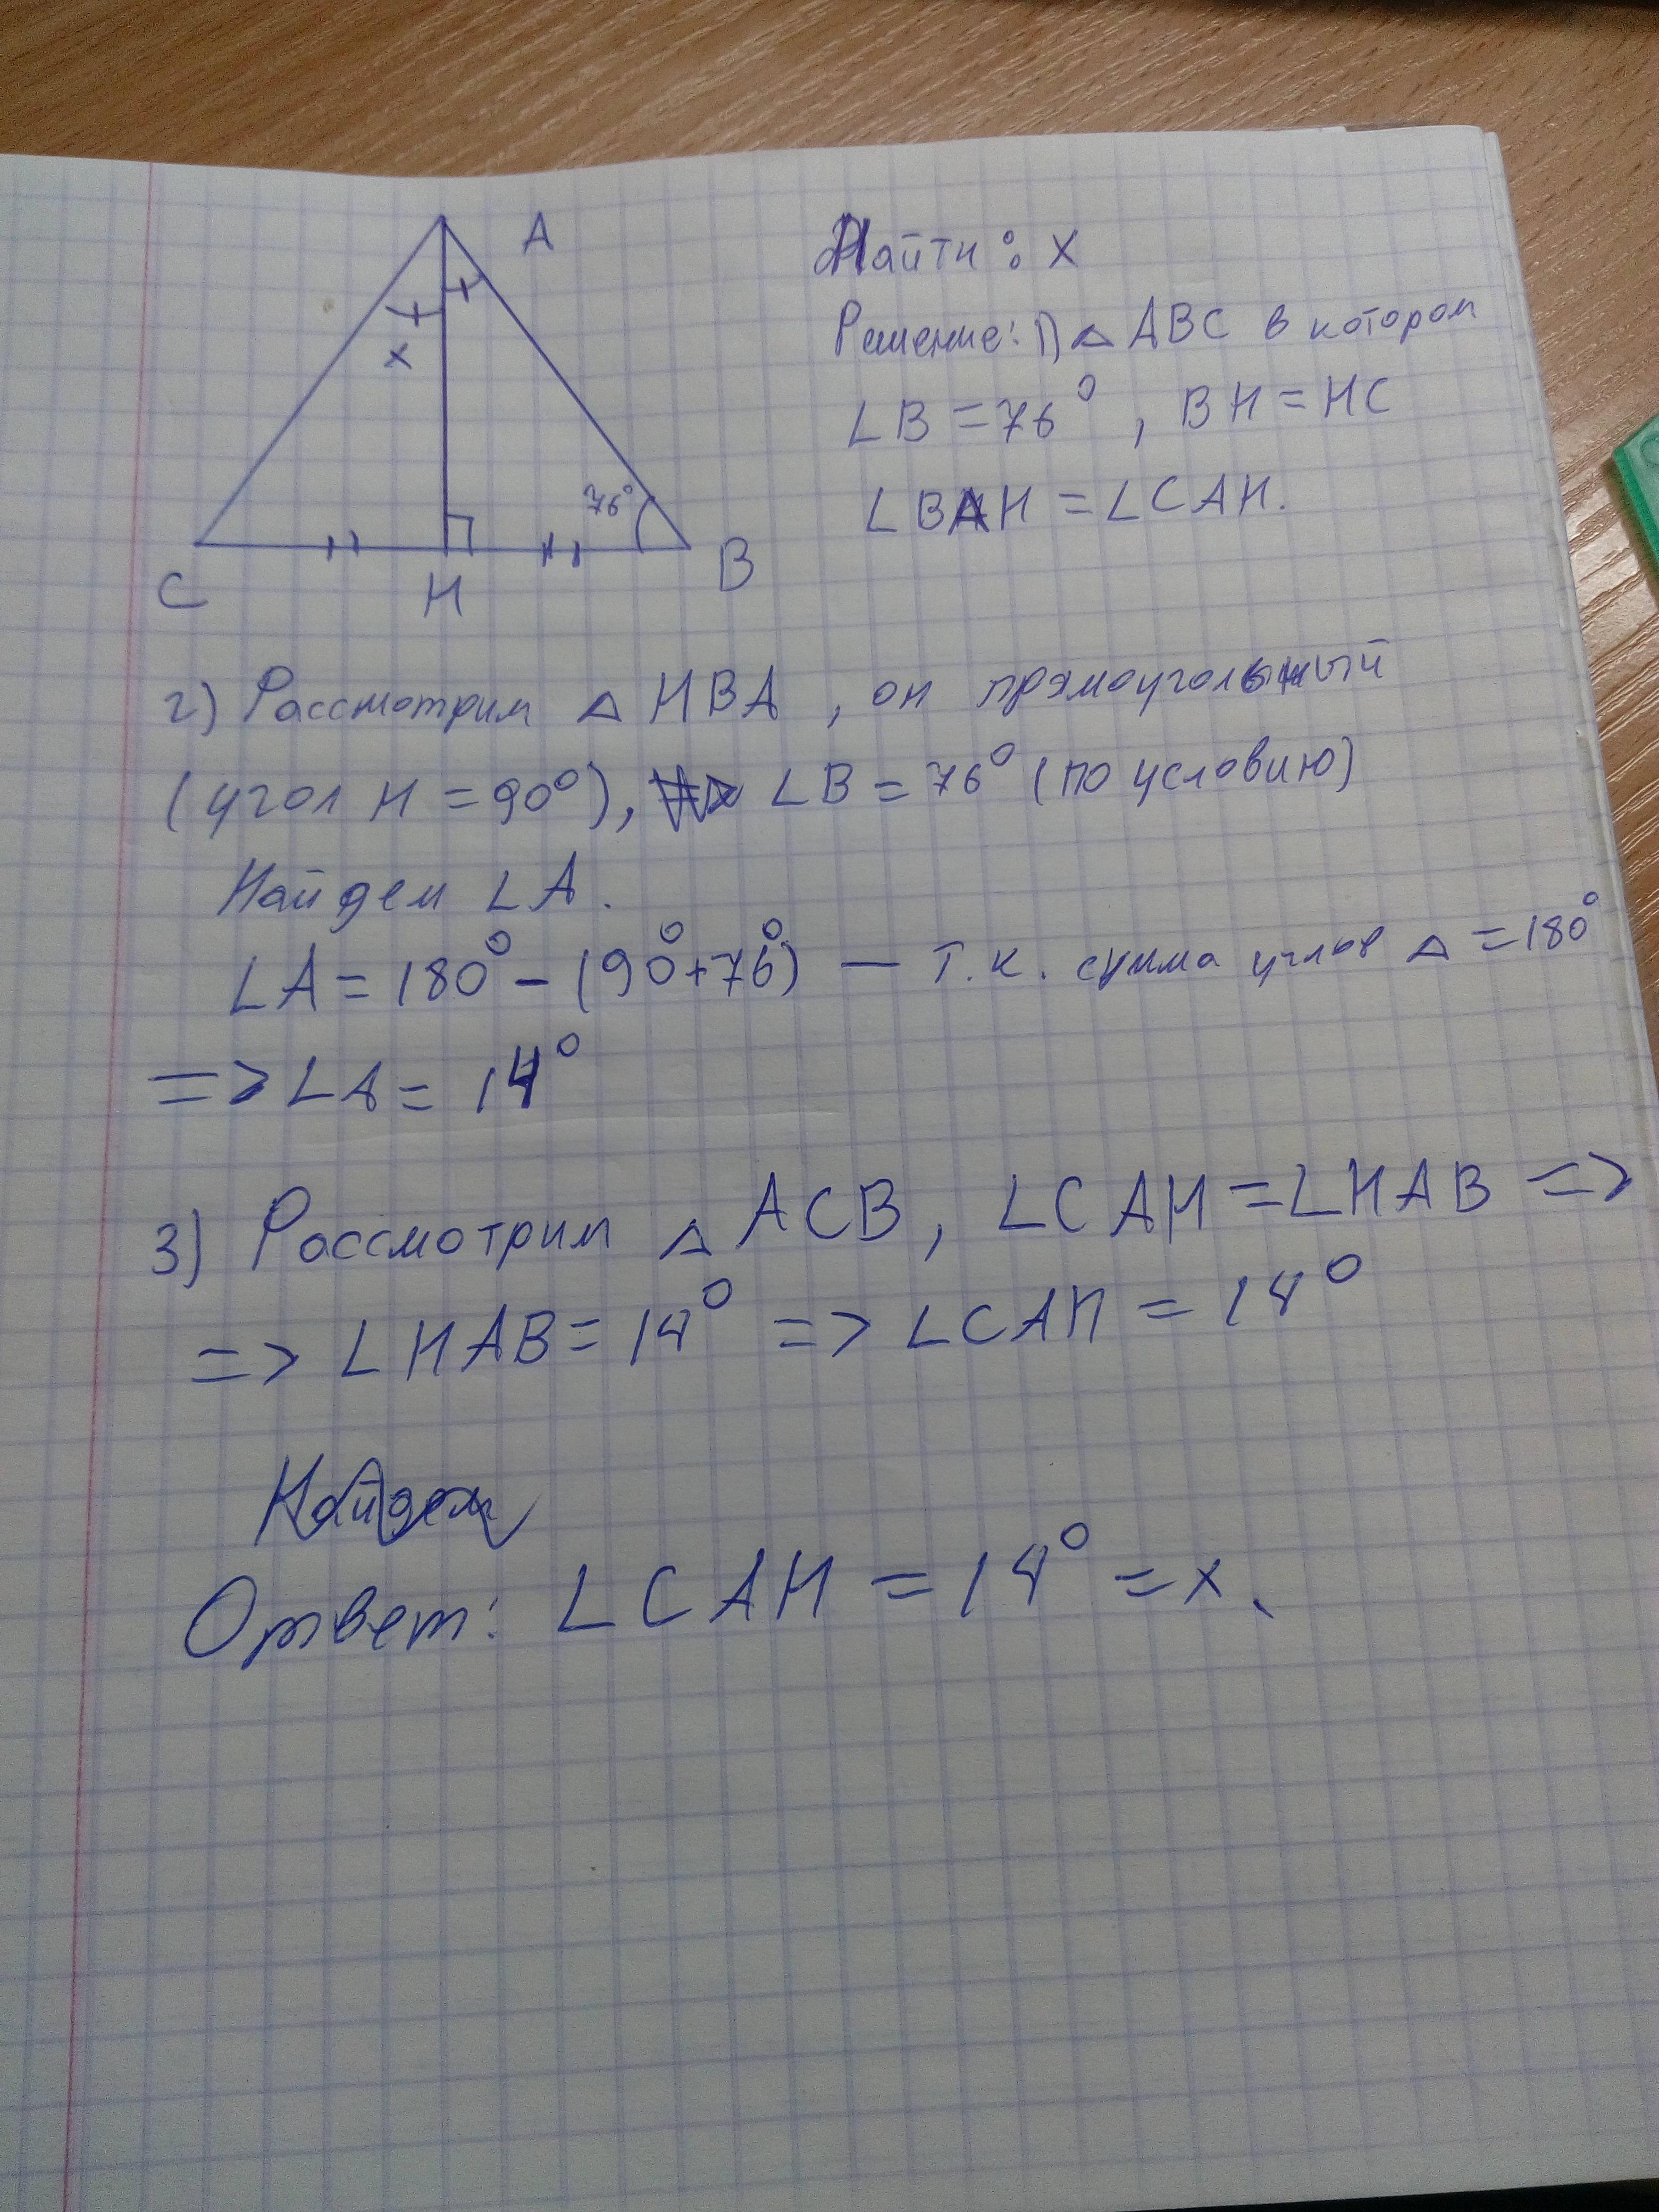 A
Найти: x
x
Решение: 1) △ ABC в котором
∠B = 76°, BH = HC
76°
∠BAH = ∠CAH.
C H B
2) Рассмотрим △ HBA, он прямоугольный
(угол H = 90°), ∠B = 76° (по условию)
Найдем ∠A.
∠A = 180° - (90° + 76°) — т.к. сумма углов △ = 180°
=> ∠A = 14°
3) Рассмотрим △ ACB, ∠CAH = ∠HAB =>
=> ∠HAB = 14° => ∠CAH = 14°
Найдем
Ответ: ∠CAH = 14° = x.